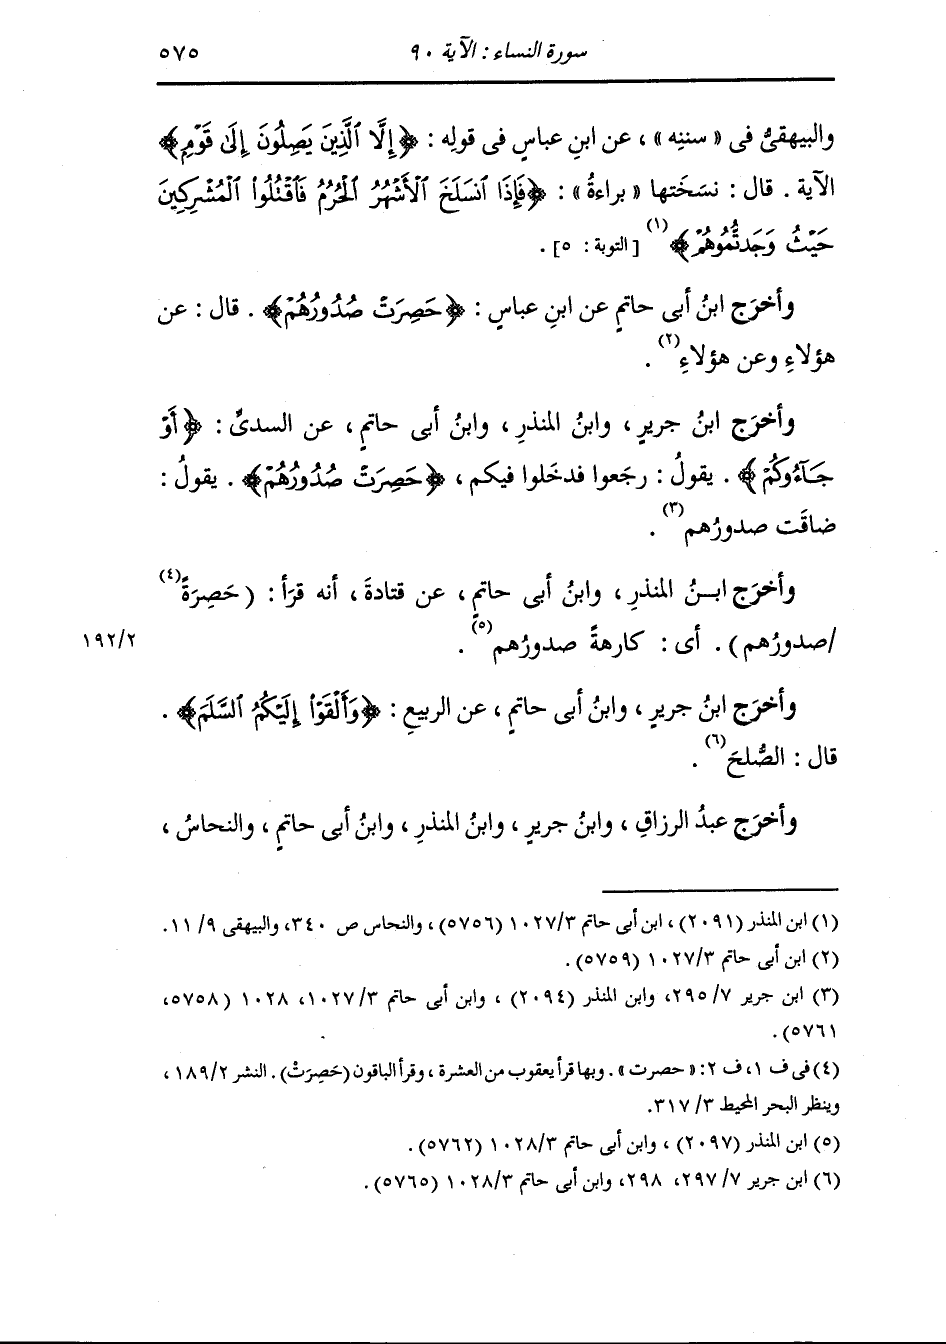 سورة النساء : الآية ٩٠ ٥٧٥
والبيهقىُّ فى « سننِه » ، عن ابنِ عباسٍ فى قولِه : ﴿إِلَّا ٱلَّذِينَ يَصِلُونَ إِلَىٰ قَوْمٍ﴾
الآية . قال : نسَخَتها « براءةُ » : ﴿فَإِذَا ٱنسَلَخَ ٱلْأَشْهُرُ ٱلْحُرُمُ فَٱقْتُلُوا۟ ٱلْمُشْرِكِينَ
حَيْثُ وَجَدتُّمُوهُمْ﴾(١) [التوبة : ٥] .
وأخرَج ابنُ أبى حاتمٍ عن ابنِ عباسٍ : ﴿حَصِرَتْ صُدُورُهُمْ﴾ . قال : عن
هؤلاءِ وعن هؤلاءِ(٢) .
وأخرَج ابنُ جريرٍ ، وابنُ المنذرِ ، وابنُ أبى حاتمٍ ، عن السدىِّ : ﴿أَوْ
جَآءُوكُمْ﴾ . يقولُ : رجَعوا فدخَلوا فيكم ، ﴿حَصِرَتْ صُدُورُهُمْ﴾ . يقولُ :
ضاقَت صدورُهم(٣) .
وأخرَج ابنُ المنذرِ ، وابنُ أبى حاتمٍ ، عن قتادةَ ، أنه قرَأ : ( حَصِرَةً(٤)
/صدورُهم ) . أى : كارهةً صدورُهم(٥) . ١٩٢/٢
وأخرَج ابنُ جريرٍ ، وابنُ أبى حاتمٍ ، عن الربيعِ : ﴿وَأَلْقَوْا۟ إِلَيْكُمُ ٱلسَّلَمَ﴾ .
قال : الصُّلحَ(٦) .
وأخرَج عبدُ الرزاقِ ، وابنُ جريرٍ ، وابنُ المنذرِ ، وابنُ أبى حاتمٍ ، والنحاسُ ،
(١) ابن المنذر (٢٠٩١) ، ابن أبى حاتم ١٠٢٧/٣ (٥٧٥٦) ، والنحاس ص ٣٤٠، والبيهقى ١١/٩.
(٢) ابن أبى حاتم ١٠٢٧/٣ (٥٧٥٩) .
(٣) ابن جرير ٢٩٥/٧، وابن المنذر (٢٠٩٤) ، وابن أبى حاتم ١٠٢٧/٣، ١٠٢٨ (٥٧٥٨،
٥٧٦١) .
(٤) فى ف ١، ف ٢: « حصرت » . وبها قرأ يعقوب من العشرة ، وقرأ الباقون (حَصِرَتْ) . النشر ١٨٩/٢ ،
وينظر البحر المحيط ٣١٧/٣.
(٥) ابن المنذر (٢٠٩٧) ، وابن أبى حاتم ١٠٢٨/٣ (٥٧٦٢) .
(٦) ابن جرير ٢٩٧/٧، ٢٩٨، وابن أبى حاتم ١٠٢٨/٣ (٥٧٦٥) .